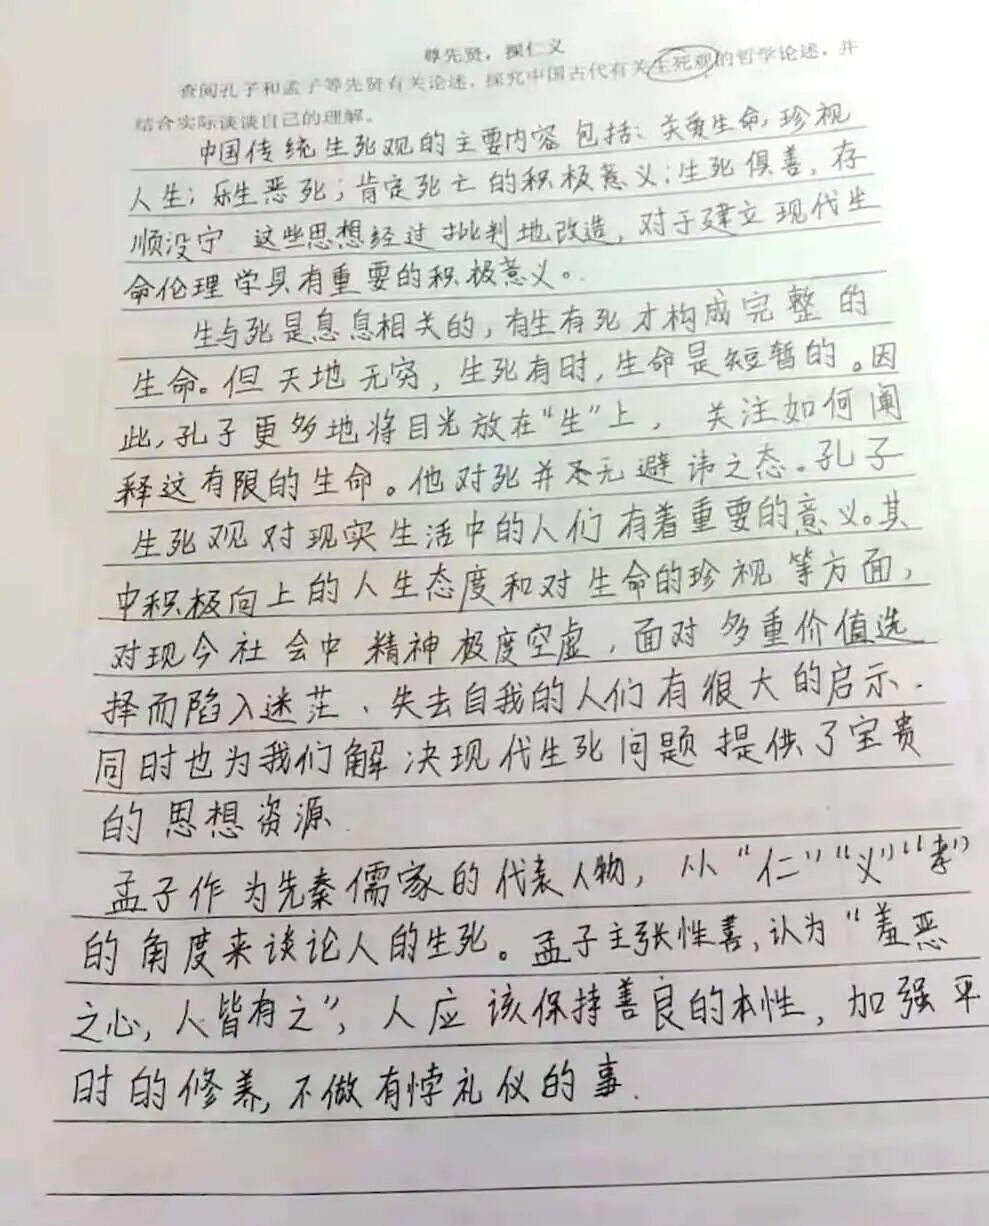 尊先贤，探仁义
查阅孔子和孟子等先贤有关论述，探究中国古代有关生死观的哲学论述，并
结合实际谈谈自己的理解。
中国传统生死观的主要内容包括：关爱生命，珍视
人生；乐生恶死；肯定死亡的积极意义；生死俱善，存
顺没宁 这些思想经过批判地改造，对于建立现代生
命伦理学具有重要的积极意义。
生与死是息息相关的，有生有死才构成完整的
生命。但天地无穷，生死有时，生命是短暂的。因
此，孔子更多地将目光放在“生”上，关注如何阐
释这有限的生命。他对死并无避讳之态。孔子
生死观对现实生活中的人们有着重要的意义。其
中积极向上的人生态度和对生命的珍视等方面，
对现今社会中精神极度空虚，面对多重价值选
择而陷入迷茫、失去自我的人们有很大的启示.
同时也为我们解决现代生死问题提供了宝贵
的思想资源.
孟子作为先秦儒家的代表人物，从“仁”“义”“孝”
的角度来谈论人的生死。孟子主张性善，认为“羞恶
之心，人皆有之”，人应该保持善良的本性，加强平
时的修养，不做有悖礼仪的事.